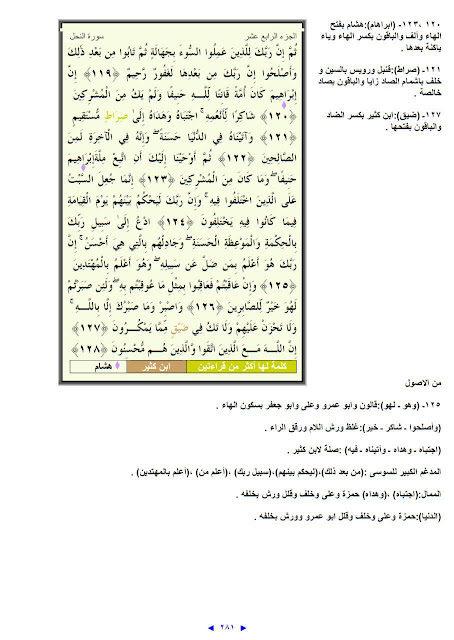 الجزء الرابع عشر
سورة النحل
ثُمَّ إِنَّ رَبَّكَ لِلَّذِينَ عَمِلُوا السُّوءَ بِجَهَالَةٍ ثُمَّ تَابُوا مِن بَعْدِ ذَٰلِكَ
وَأَصْلَحُوا إِنَّ رَبَّكَ مِن بَعْدِهَا لَغَفُورٌ رَّحِيمٌ ﴿١١٩﴾ إِنَّ
إِبْرَاهِيمَ كَانَ أُمَّةً قَانِتًا لِّلَّـهِ حَنِيفًا وَلَمْ يَكُ مِنَ الْمُشْرِكِينَ
﴿١٢٠﴾ شَاكِرًا لِّأَنْعُمِهِ ۚ اجْتَبَاهُ وَهَدَاهُ إِلَىٰ صِرَاطٍ مُّسْتَقِيمٍ
﴿١٢١﴾ وَآتَيْنَاهُ فِي الدُّنْيَا حَسَنَةً ۖ وَإِنَّهُ فِي الْآخِرَةِ لَمِنَ
الصَّالِحِينَ ﴿١٢٢﴾ ثُمَّ أَوْحَيْنَا إِلَيْكَ أَنِ اتَّبِعْ مِلَّةَ إِبْرَاهِيمَ
حَنِيفًا ۖ وَمَا كَانَ مِنَ الْمُشْرِكِينَ ﴿١٢٣﴾ إِنَّمَا جُعِلَ السَّبْتُ
عَلَى الَّذِينَ اخْتَلَفُوا فِيهِ ۚ وَإِنَّ رَبَّكَ لَيَحْكُمُ بَيْنَهُمْ يَوْمَ الْقِيَامَةِ
فِيمَا كَانُوا فِيهِ يَخْتَلِفُونَ ﴿١٢٤﴾ ادْعُ إِلَىٰ سَبِيلِ رَبِّكَ
بِالْحِكْمَةِ وَالْمَوْعِظَةِ الْحَسَنَةِ ۖ وَجَادِلْهُم بِالَّتِي هِيَ أَحْسَنُ ۚ إِنَّ
رَبَّكَ هُوَ أَعْلَمُ بِمَن ضَلَّ عَن سَبِيلِهِ ۖ وَهُوَ أَعْلَمُ بِالْمُهْتَدِينَ
﴿١٢٥﴾ وَإِنْ عَاقَبْتُمْ فَعَاقِبُوا بِمِثْلِ مَا عُوقِبْتُم بِهِ ۖ وَلَئِن صَبَرْتُمْ
لَهُوَ خَيْرٌ لِّلصَّابِرِينَ ﴿١٢٦﴾ وَاصْبِرْ وَمَا صَبْرُكَ إِلَّا بِاللَّـهِ ۚ
وَلَا تَحْزَنْ عَلَيْهِمْ وَلَا تَكُ فِي ضَيْقٍ مِّمَّا يَمْكُرُونَ ﴿١٢٧﴾
إِنَّ اللَّـهَ مَعَ الَّذِينَ اتَّقَوا وَّالَّذِينَ هُم مُّحْسِنُونَ ﴿١٢٨﴾
كلمة لها أكثر من قراءتين
ابن كثير
هشام
١٢٠، ١٢٣- (ابراهام):هشام بفتح
الهاء وألف والباقون بكسر الهاء وياء
ساكنة بعدها .
١٢١- (صراط):قنبل ورويس بالسين و
خلف باشمام الصاد زايا والباقون بصاد
خالصة .
١٢٧- (ضيق):ابن كثير بكسر الضاد
والباقون بفتحها .
من الاصول
١٢٥- (وهو ـ لهو):قالون وابو عمرو وعلى وابو جعفر بسكون الهاء .
(وأصلحوا ـ شاكر ـ خير):غلظ ورش اللام ورقق الراء .
(اجتباه ـ وهداه ـ وآتيناه ـ فيه) :صلة لابن كثير .
المدغم الكبير للسوسى :(من بعد ذلك)،(ليحكم بينهم)،(سبيل ربك) ،(أعلم من) ،(أعلم بالمهتدين) .
الممال:(اجتباه) ،(وهداه) حمزة وعلى وخلف وقلل ورش بخلفه .
(الدنيا):حمزة وعلى وخلف وقلل ابو عمرو وورش بخلفه .
٢٨١